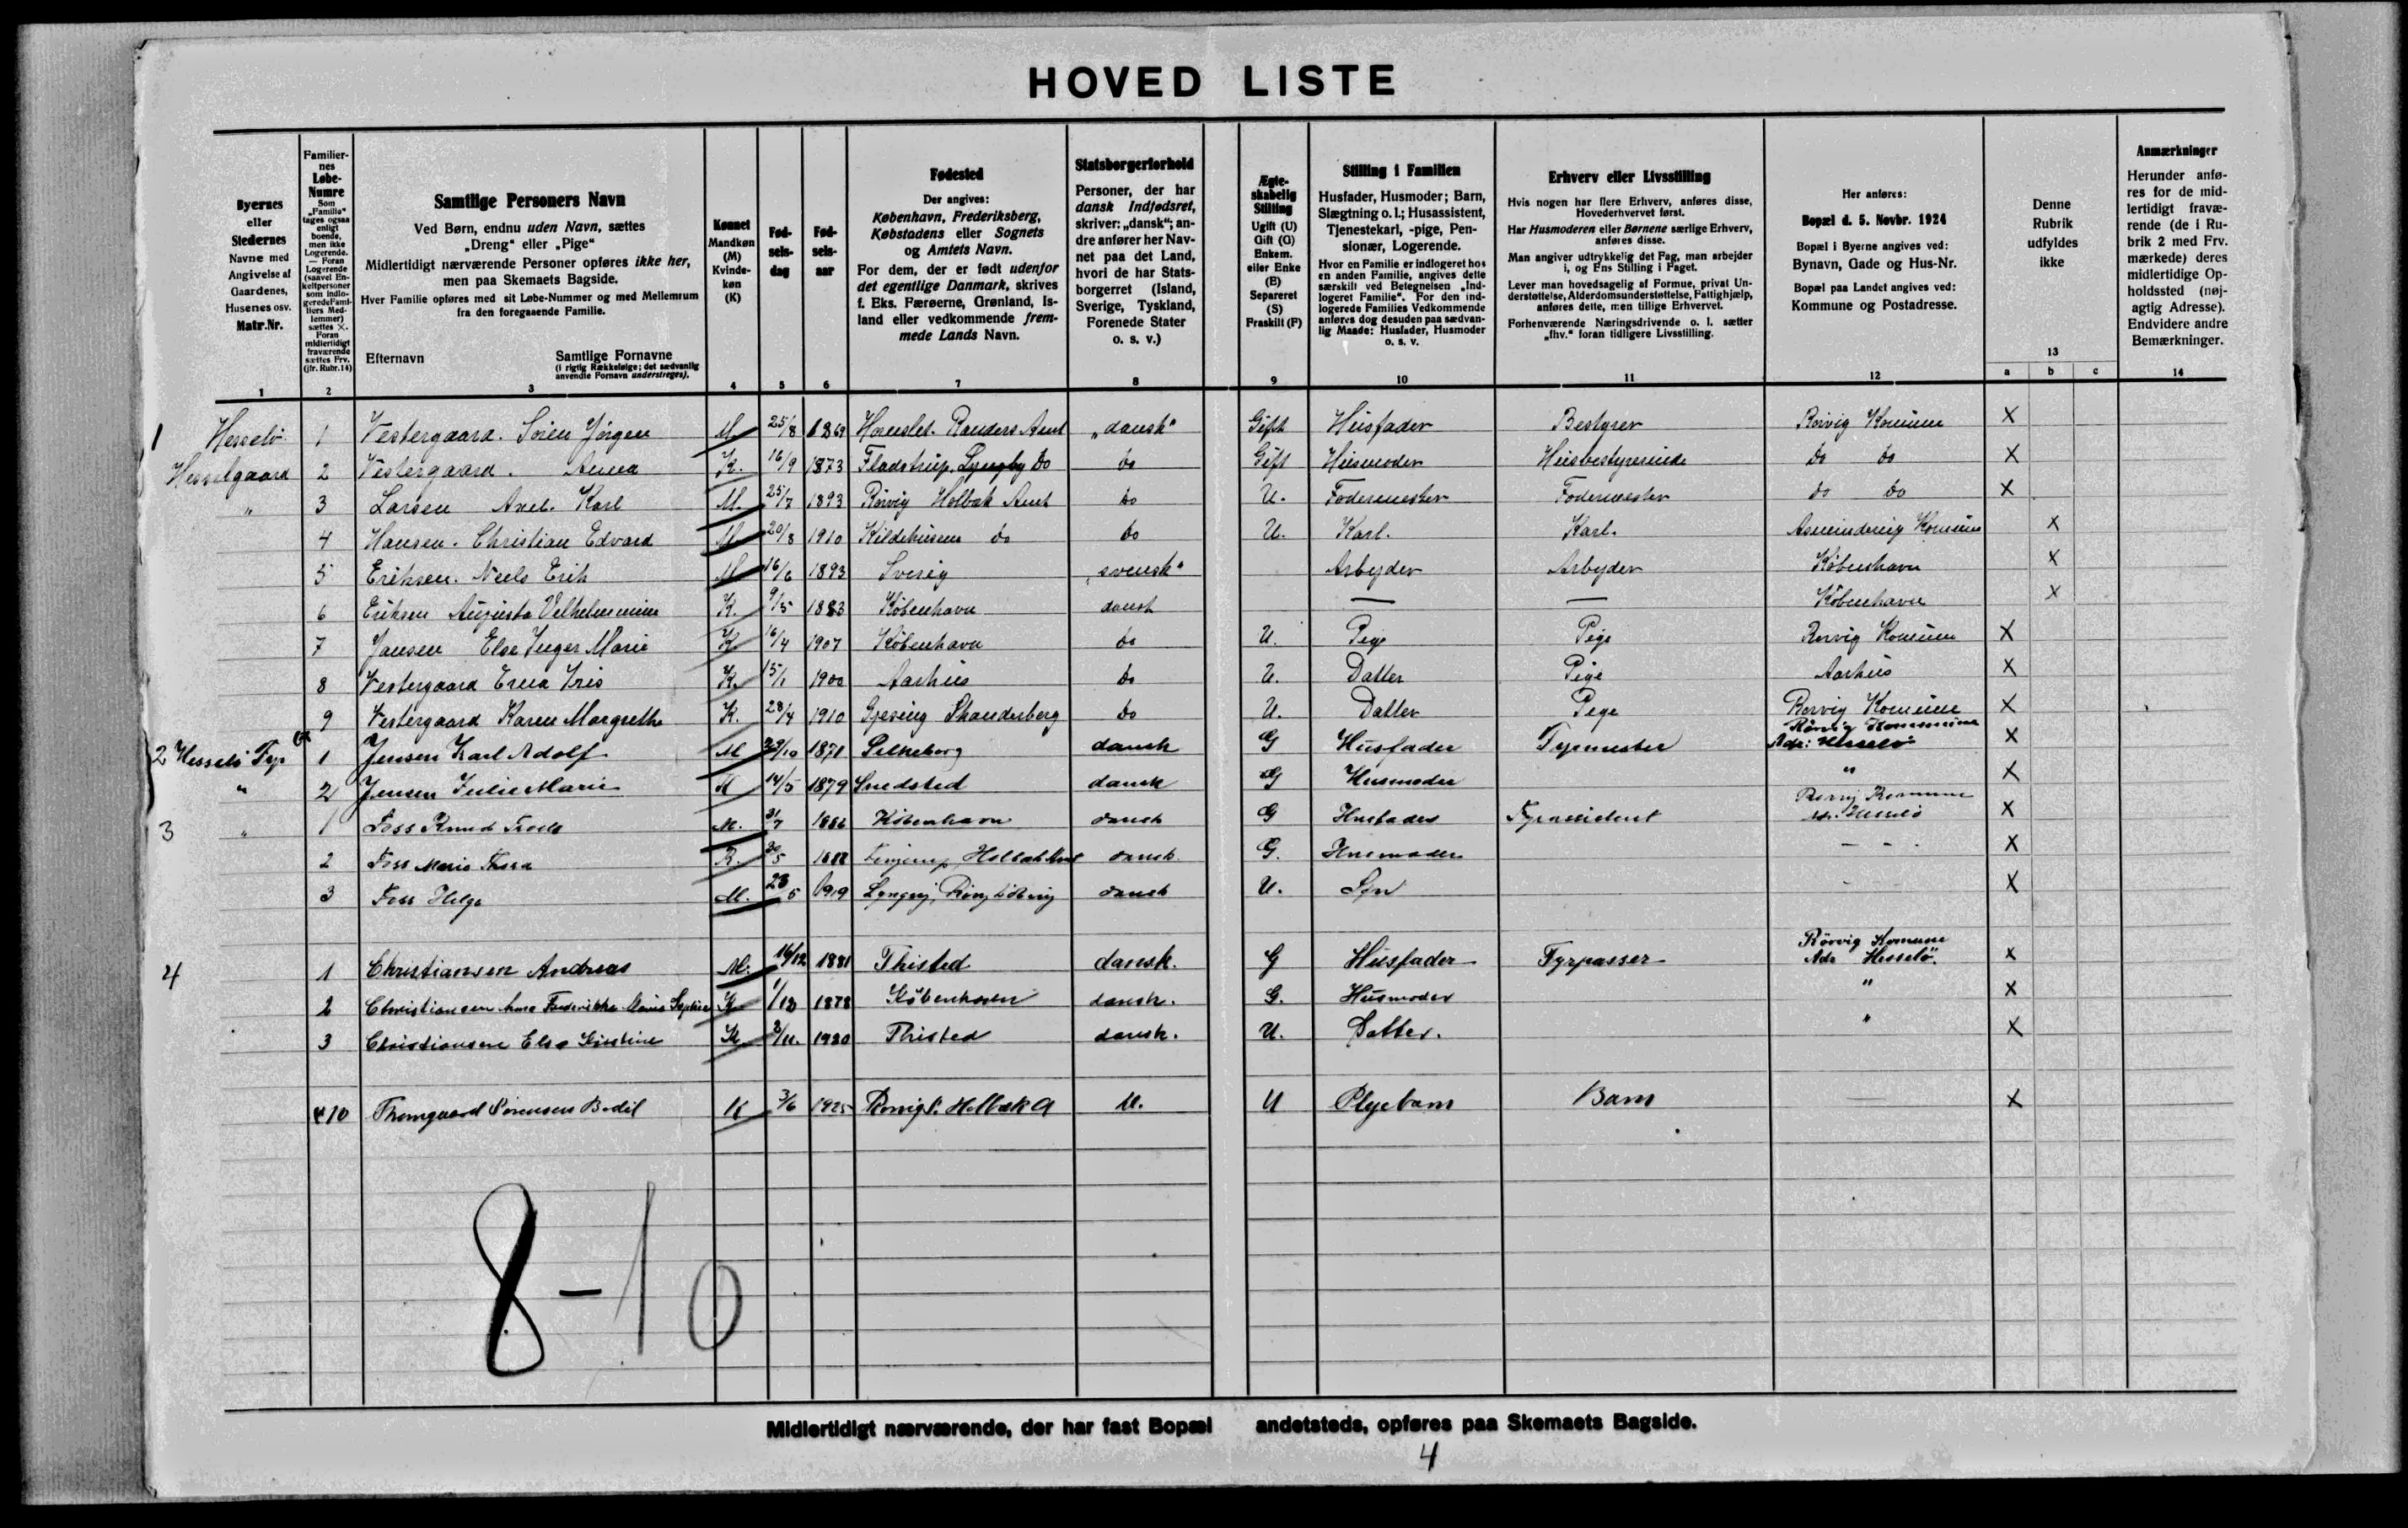 HOVED LISTE
Byernes eller Stedernes Navne med Angivelse af Gaardenes, Husenes osv. Matr.Nr.
Familiernes Løbe-Numre Som „Familie“ tages ogsaa enligt boende, men ikke Logerende. — Foran Logerende (saavel Enkeltpersoner som indlogerede Familiers Medlemmer) sættes ×. Foran midlertidigt fraværende sættes Frv. (jfr. Rubr. 14)
Samtlige Personers Navn
Ved Børn, endnu uden Navn, sættes „Dreng“ eller „Pige“
Midlertidigt nærværende Personer opføres ikke her, men paa Skemaets Bagside.
Hver Familie opføres med sit Løbe-Nummer og med Mellemrum fra den foregaaende Familie.
Efternavn Samtlige Fornavne (i rigtig Rækkefølge; det sædvanlig anvendte Fornavn understreges).
Kønnet Mandkøn (M) Kvindekøn (K)
Fødselsdag
Fødselsaar
Fødested
Der angives: København, Frederiksberg, Købstadens eller Sognets og Amtets Navn.
For dem, der er født udenfor det egentlige Danmark, skrives f. Eks. Færøerne, Grønland, Island eller vedkommende fremmede Lands Navn.
Statsborgerforhold
Personer, der har dansk Indfødsret, skriver: „dansk“; andre anfører her Navnet paa det Land, hvori de har Statsborgerret (Island, Sverige, Tyskland, Forenede Stater o. s. v.)
Ægteskabelig Stilling Ugift (U) Gift (G) Enkem. eller Enke (E) Separeret (S) Fraskilt (F)
Stilling i Familien
Husfader, Husmoder; Barn, Slægtning o. l.; Husassistent, Tjenestekarl, -pige, Pensionær, Logerende.
Hvor en Familie er indlogeret hos en anden Familie, angives dette særskilt ved Betegnelsen „Indlogeret Familie“. For den indlogerede Families Vedkommende anføres dog desuden paa sædvanlig Maade: Husfader, Husmoder o. s. v.
Erhverv eller Livsstilling
Hvis nogen har flere Erhverv, anføres disse, Hovederhvervet først.
Har Husmoderen eller Børnene særlige Erhverv, anføres disse.
Man angiver udtrykkelig det Fag, man arbejder i, og Ens Stilling i Faget.
Lever man hovedsagelig af Formue, privat Understøttelse, Alderdomsunderstøttelse, Fattighjælp, anføres dette, men tillige Erhvervet.
Forhenværende Næringsdrivende o. l. sætter „fhv.“ foran tidligere Livsstilling.
Her anføres: Bopæl d. 5. Novbr. 1924
Bopæl i Byerne angives ved: Bynavn, Gade og Hus-Nr.
Bopæl paa Landet angives ved: Kommune og Postadresse.
Denne Rubrik udfyldes ikke
Anmærkninger
Herunder anføres for de midlertidigt fraværende (de i Rubrik 2 med Frv. mærkede) deres midlertidige Opholdssted (nøjagtig Adresse). Endvidere andre Bemærkninger.
1 2 3 4 5 6 7 8 9 10 11 12 13 a b c 14
1 Hesselø 1 Vestergaard. Sören Jörgen M. 25/8 1869 Hornslet. Randers Amt „dansk“ Gift Husfader Bestyrer Rørvig Komune X
Hesselgaard 2 Vestergaard. Anna K. 16/9 1873 Fladstrup. Lyngby do do Gift Husmoder Husbestyrerinde do do X
" 3 Larsen Axel. Karl M. 25/7 1893 Rörvig Holbæk Amt do U. Fodermester Fodermester do do X
4 Hansen. Christian Edvard M 20/8 1910 Kildehusene do do U. Karl. Karl. Asminderup Komune X
5 Eriksen. Niels Erik M 16/6 1893 Sverig „svensk“ Arbejder Arbejder København X
6 Eriksen Augusta Vilhelmine K. 9/5 1883 København dansk — — København X
7 Jansen Else Inger Marie K. 16/4 1907 København do U. Pige Pige Rørvig Komune X
8 Vestergaard Erna Iris K. 15/1 1900 Aarhus do U. Datter Pige Aarhus X
9 Vestergaard Karen Margrethe K. 28/4 1910 Gjesing Skanderborg do U. Datter Pige Rørvig Komune X
2 Hesselö Fyr 1 Jensen Karl Adolf M 29/10 1871 Silkeborg dansk G Husfader Fyrmester Rørvig Kommune Adr: Hesselö X
" 2 Jensen Julie Marie K 14/5 1879 Snedsted dansk G Husmoder " X
3 " 1 Foss Knud Troels M. 31/7 1886 København dansk G Husfader Fyrassistent Rørvig Komune Adr. Hesselø X
2 Foss Marie Thora K. 30/5 1888 Holbæk Amt dansk G. Husmoder - - - X
3 Foss Helge M. 28/5 1919 Lyngvig, Ringkøbing dansk U. Søn - - X
4 1 Christiansen Andreas M. 16/12 1881 Thisted dansk. G Husfader Fyrpasser Rörvig Komune Adr Hesselö. X
2 Christiansen Frederikke Marie Sophie K 1/12 1878 København dansk. G. Husmoder " X
3 Christiansen Else Kirstine K 2/11. 1920 Thisted dansk. U. Datter. " X
10 Thomgaard Sörensen Bodil K 3/6 1925 Holbæk A U Plejebarn Barn X
8-10
Midlertidigt nærværende, der har fast Bopæl andetsteds, opføres paa Skemaets Bagside.
4